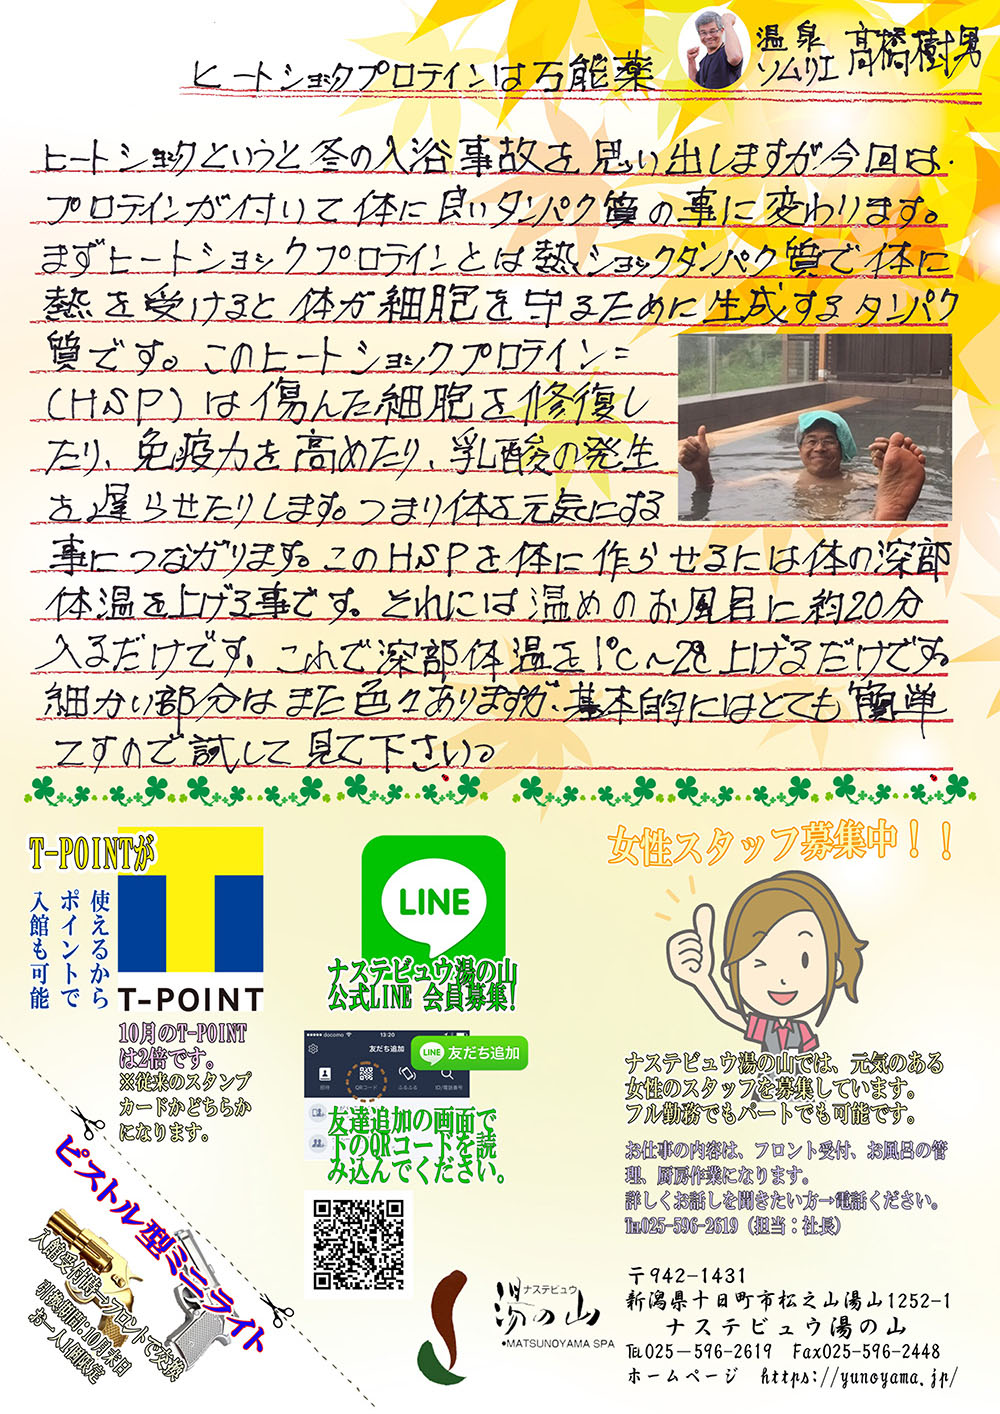 温泉
ソムリエ 髙橋樹男
ヒートショックプロテインは万能薬
ヒートショックというと冬の入浴事故を思い出しますが今回は、
プロテインが付いて体に良いタンパク質の事に変わります。
まずヒートショックプロテインとは熱ショックタンパク質で体に
熱を受けると体が細胞を守るために生成するタンパク
質です。このヒートショックプロテイン=
(HSP)は傷んだ細胞を修復し
たり、免疫力を高めたり、乳酸の発生
を遅らせたりします。つまり体を元気にする
事につながります。このHSPを体に作らせるには体の深部
体温を上げる事です。それには温めのお風呂に約20分
入るだけです。これで深部体温を1℃~2℃上げるだけです。
細かい部分はまた色々ありますが、基本的にはとても簡単
ですので試して見て下さい。
T-POINTが
使えるから
ポイントで
入館も可能
T-POINT
10月のT-POINT
は2倍です。
※従来のスタンプ
カードかどちらか
になります。
LINE
ナステビュウ湯の山
公式LINE 会員募集!
docomo 13:20
友だち追加
招待 QRコード ふるふる ID/電話番号
LINE 友だち追加
友達追加の画面で
下のQRコードを読
み込んでください。
女性スタッフ募集中!!
ナステビュウ湯の山では、元気のある
女性のスタッフを募集しています。
フル勤務でもパートでも可能です。
お仕事の内容は、フロント受付、お風呂の管
理、厨房作業になります。
詳しくお話しを聞きたい方→電話ください。
℡025-596-2619(担当:社長)
ピストル型ミニライト
入館受付時→フロントで交換
引換期間:10月末日
お一人1個限定
ナステビュウ
湯の山
•MATSUNOYAMA SPA
〒942-1431
新潟県十日町市松之山湯山1252-1
ナステビュウ湯の山
℡025-596-2619 Fax025-596-2448
ホームページ https://yunoyama.jp/